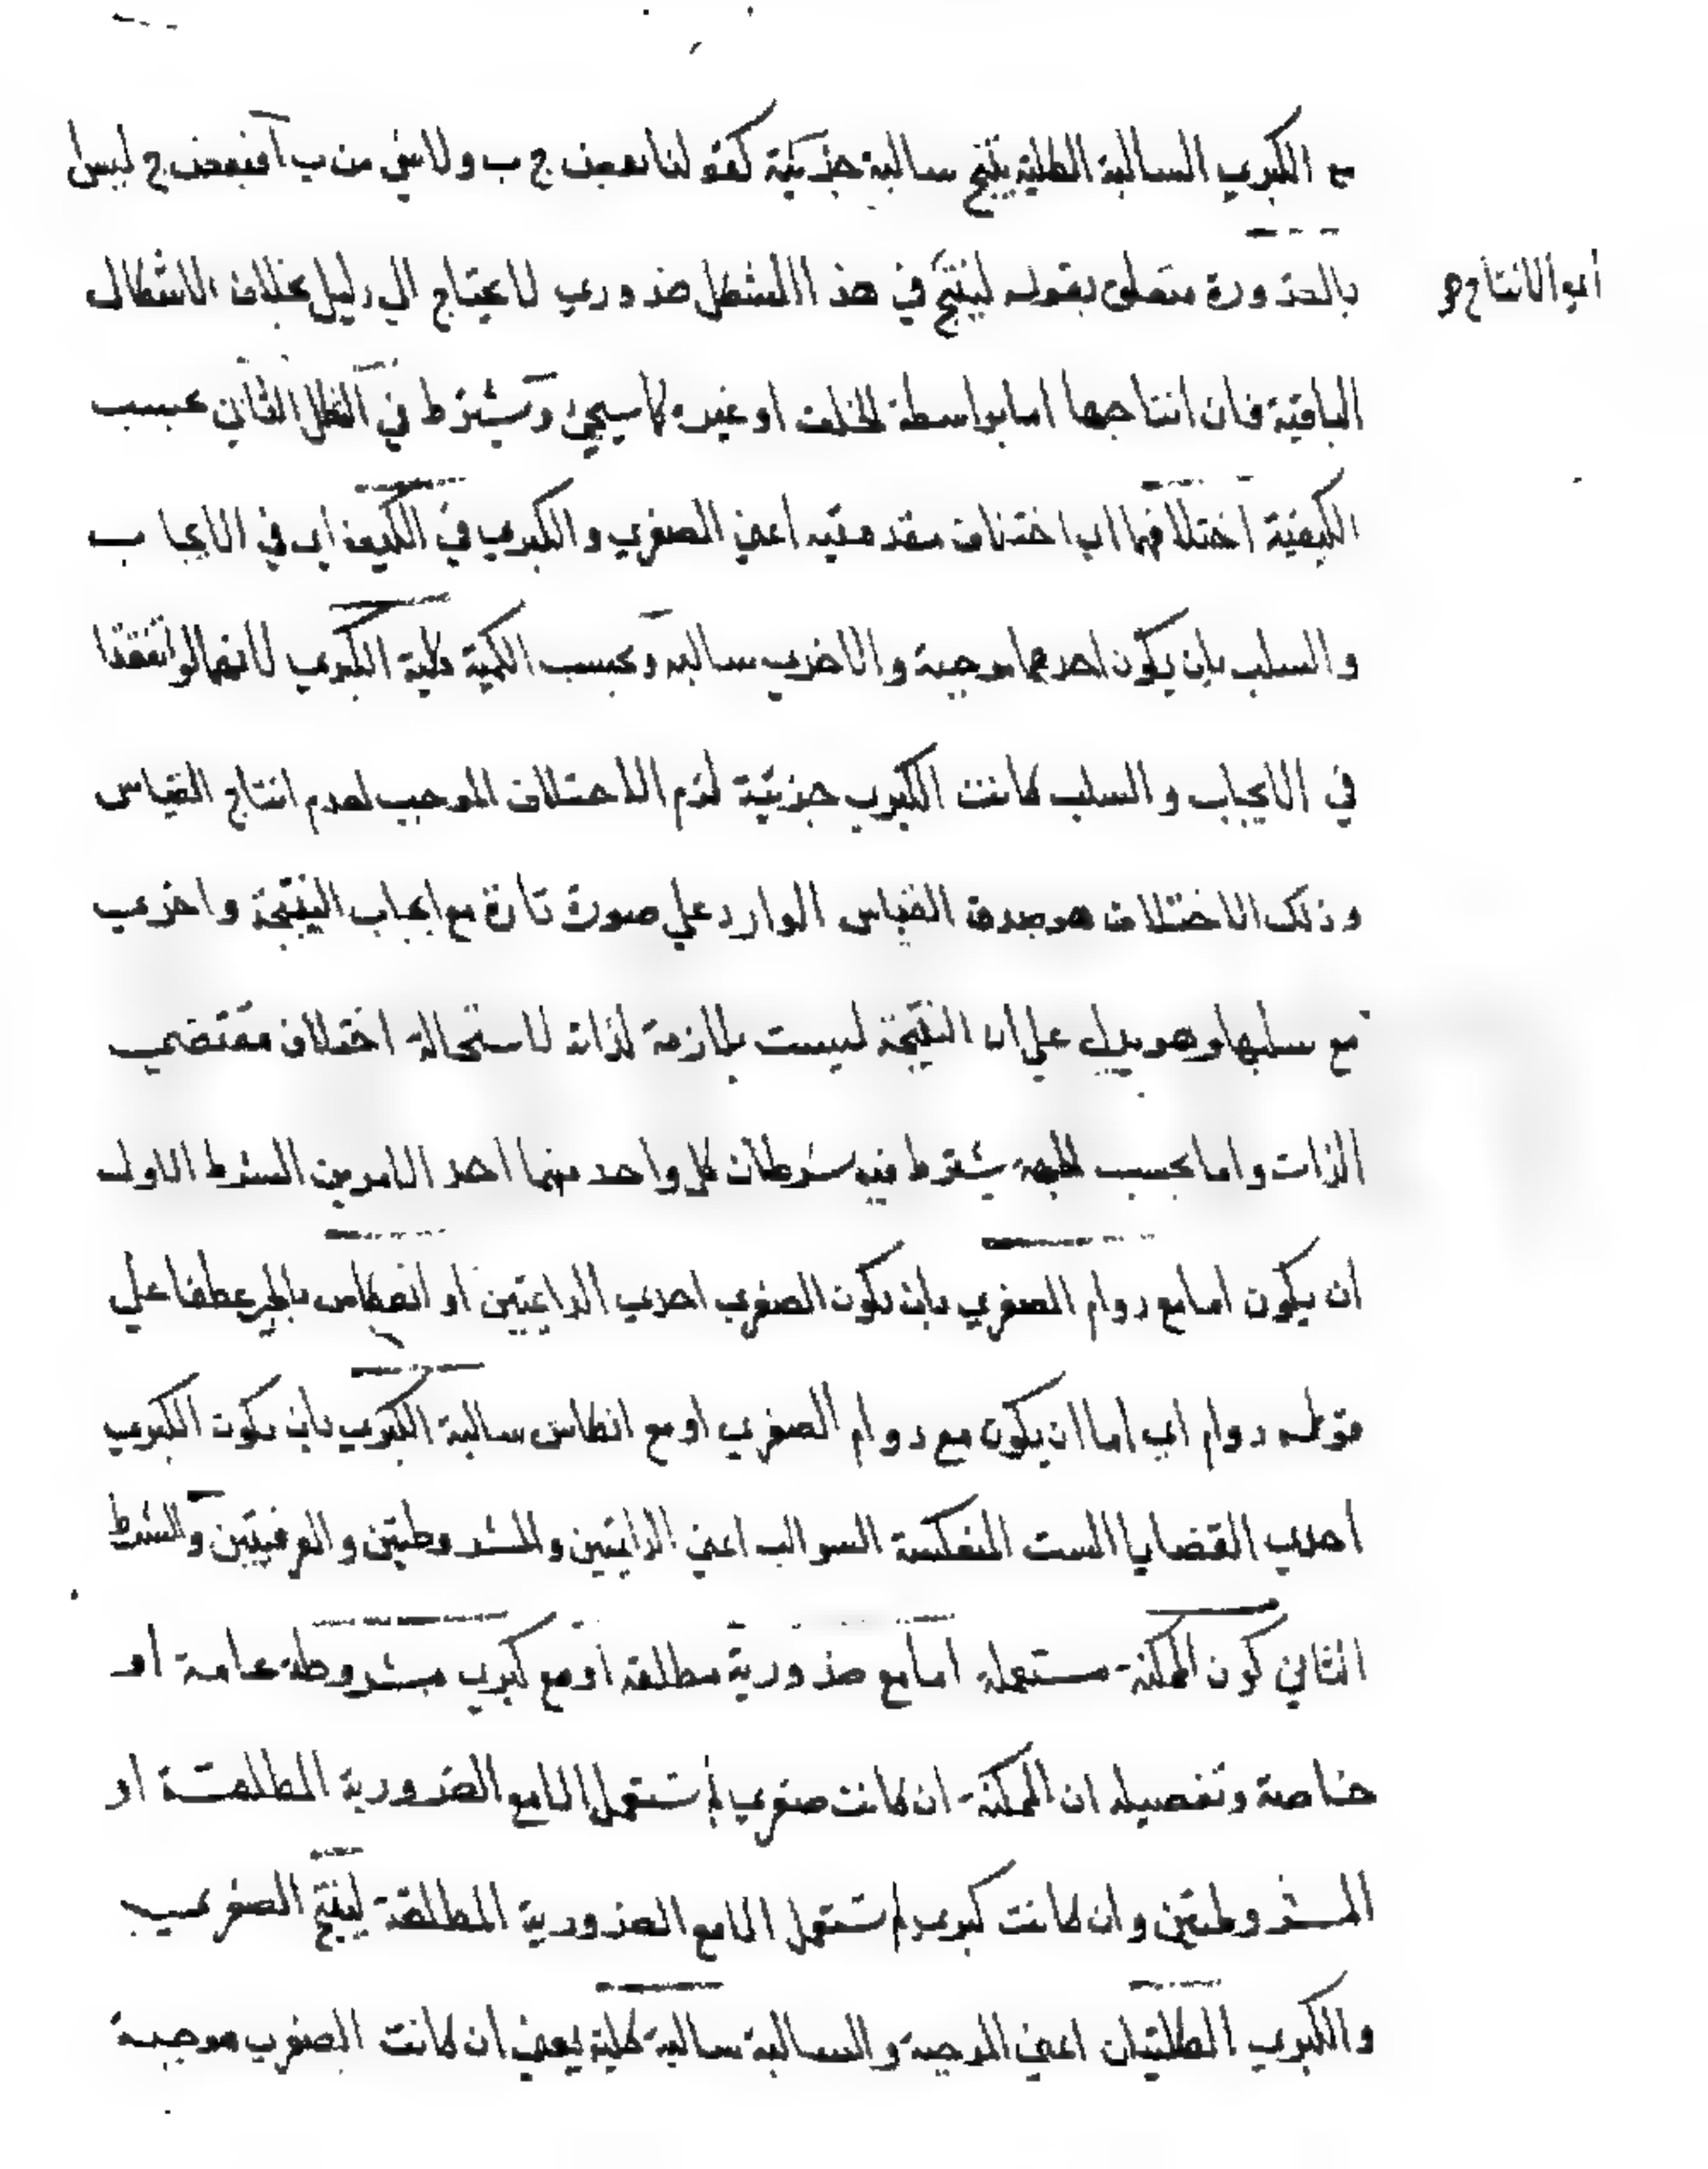 مع الكبري السالبة الكلية ينتج سالبة جزئية كقولنا بعض ج ب ولا شئ من ب آ فبعض ج ليس
بالضرورة متعلق بقوله لينتج في هذا الشكل ضروري لا يحتاج الي دليل بخلاف الاشكال
اي الانتاج
الباقية فان انتاجها اما بواسطة الخلف او غيره كما سيجئ ويشترط في الشكل الثاني بحسب
الكيفية اختلافهما اي اختلاف مقدمتيه اعني الصغري والكبري في الكيف اي في الايجاب
والسلب بان يكون احدهما موجبة والاخري سالبة وبحسب الكمية كلية الكبري لانهما لو اتفقتا
في الايجاب والسلب كانت الكبري جزئية لزم الاختلاف الموجب لعدم انتاج القياس
وذلك الاختلاف هو صدق القياس الوارد علي صورة تارة مع ايجاب النتيجة واخري
مع سلبها وهو يدل علي ان النتيجة ليست بلازمة لذاته لاستحالة اختلاف مقتضي
الذات واما بحسب الجهة يشترط فيه شرطان كل واحد منهما احد الامرين الشرط الاول
ان يكون اما مع دوام الصغري بان يكون الصغري احدي الدائمتين او انعكاس بالجر عطفا علي
قوله دوام اي اما ان يكون مع دوام الصغري او مع انعكاس سالبة الكبري بان يكون الكبري
احدي القضايا الست المنعكسة السوالب اعني الدائمتين والمشروطتين والعرفيتين والشرط
الثاني كون الممكنة مستعملة اما مع ضرورية مطلقة او مع كبري مشروطة عامة او
خاصة وتفصيله ان الممكنة ان كانت صغري لم تستعمل الا مع الضرورية المطلقة او
المشروطتين وان كانت كبري لم تستعمل الا مع الضرورية المطلقة لينتج الصغري
والكبري الكليتان اعني الموجبة والسالبة سالبة كلية يعني ان كانت الصغري موجبة